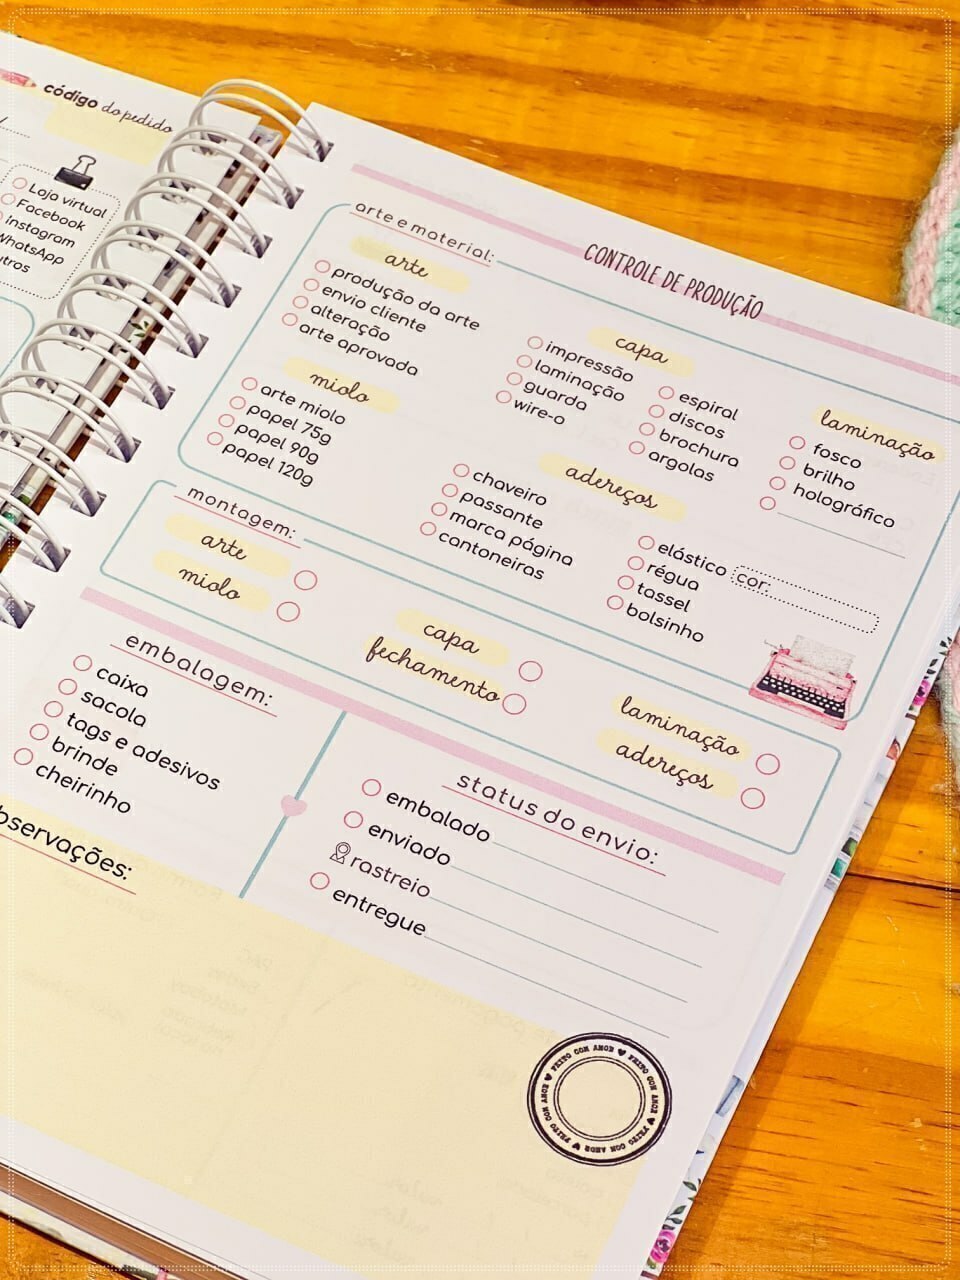 código do pedido
Loja virtual
Facebook
Instagram
WhatsApp
CONTROLE DE PRODUÇÃO
arte e material:
arte
produção da arte
envio cliente
alteração
arte aprovada
miolo
arte miolo
papel 75g
papel 90g
papel 120g
capa
impressão
laminação
guarda
wire-o
espiral
discos
brochura
argolas
laminação
fosco
brilho
holográfico
adereços
chaveiro
passante
marca página
cantoneiras
elástico cor:
régua
tassel
bolsinho
montagem:
arte
miolo
capa
fechamento
laminação
adereços
embalagem:
caixa
sacola
tags e adesivos
brinde
cheirinho
status do envio:
embalado
enviado
rastreio
entregue
bservações:
FEITO COM AMOR ♥ FEITO COM AMOR ♥ FEITO COM AMOR ♥ FEITO COM AMOR ♥